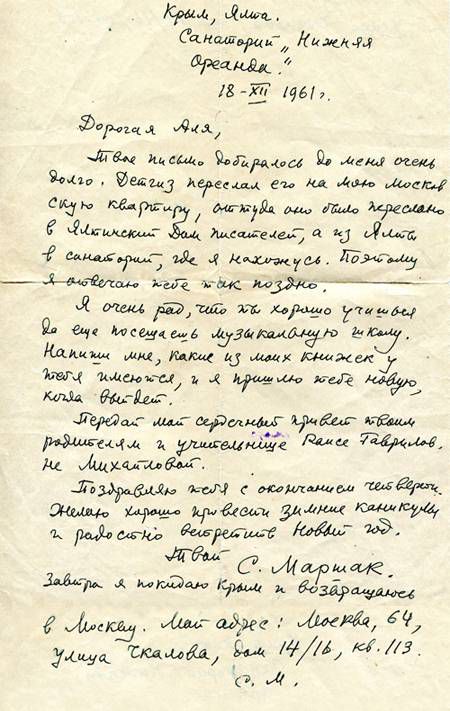 Крым, Ялта.
Санаторий „Нижняя
Ореанда".
18-XII 1961 г.
Дорогая Аля,
Твое письмо добиралось до меня очень
долго. Детгиз переслал его на мою москов
скую квартиру, оттуда оно было переслано
в Ялтинский Дом писателей, а из Ялты
в санаторий, где я нахожусь. Поэтому
я отвечаю тебе так поздно.
Я очень рад, что ты хорошо учишься
да еще посещаешь музыкальную школу.
Напиши мне, какие из моих книжек у
тебя имеются, и я пришлю тебе новую,
когда выйдет.
Передай мой сердечный привет твоим
родителям и учительнице Раисе Гаврилов.
не Михайловой.
Поздравляю тебя с окончанием четверти.
Желаю хорошо провести зимние каникулы
и радостно встретить Новый год.
Твой С. Маршак.
Завтра я покидаю Крым и возвращаюсь
в Москву. Мой адрес: Москва, 64,
улица Чкалова, дом 14/16, кв. 113.
С. М.